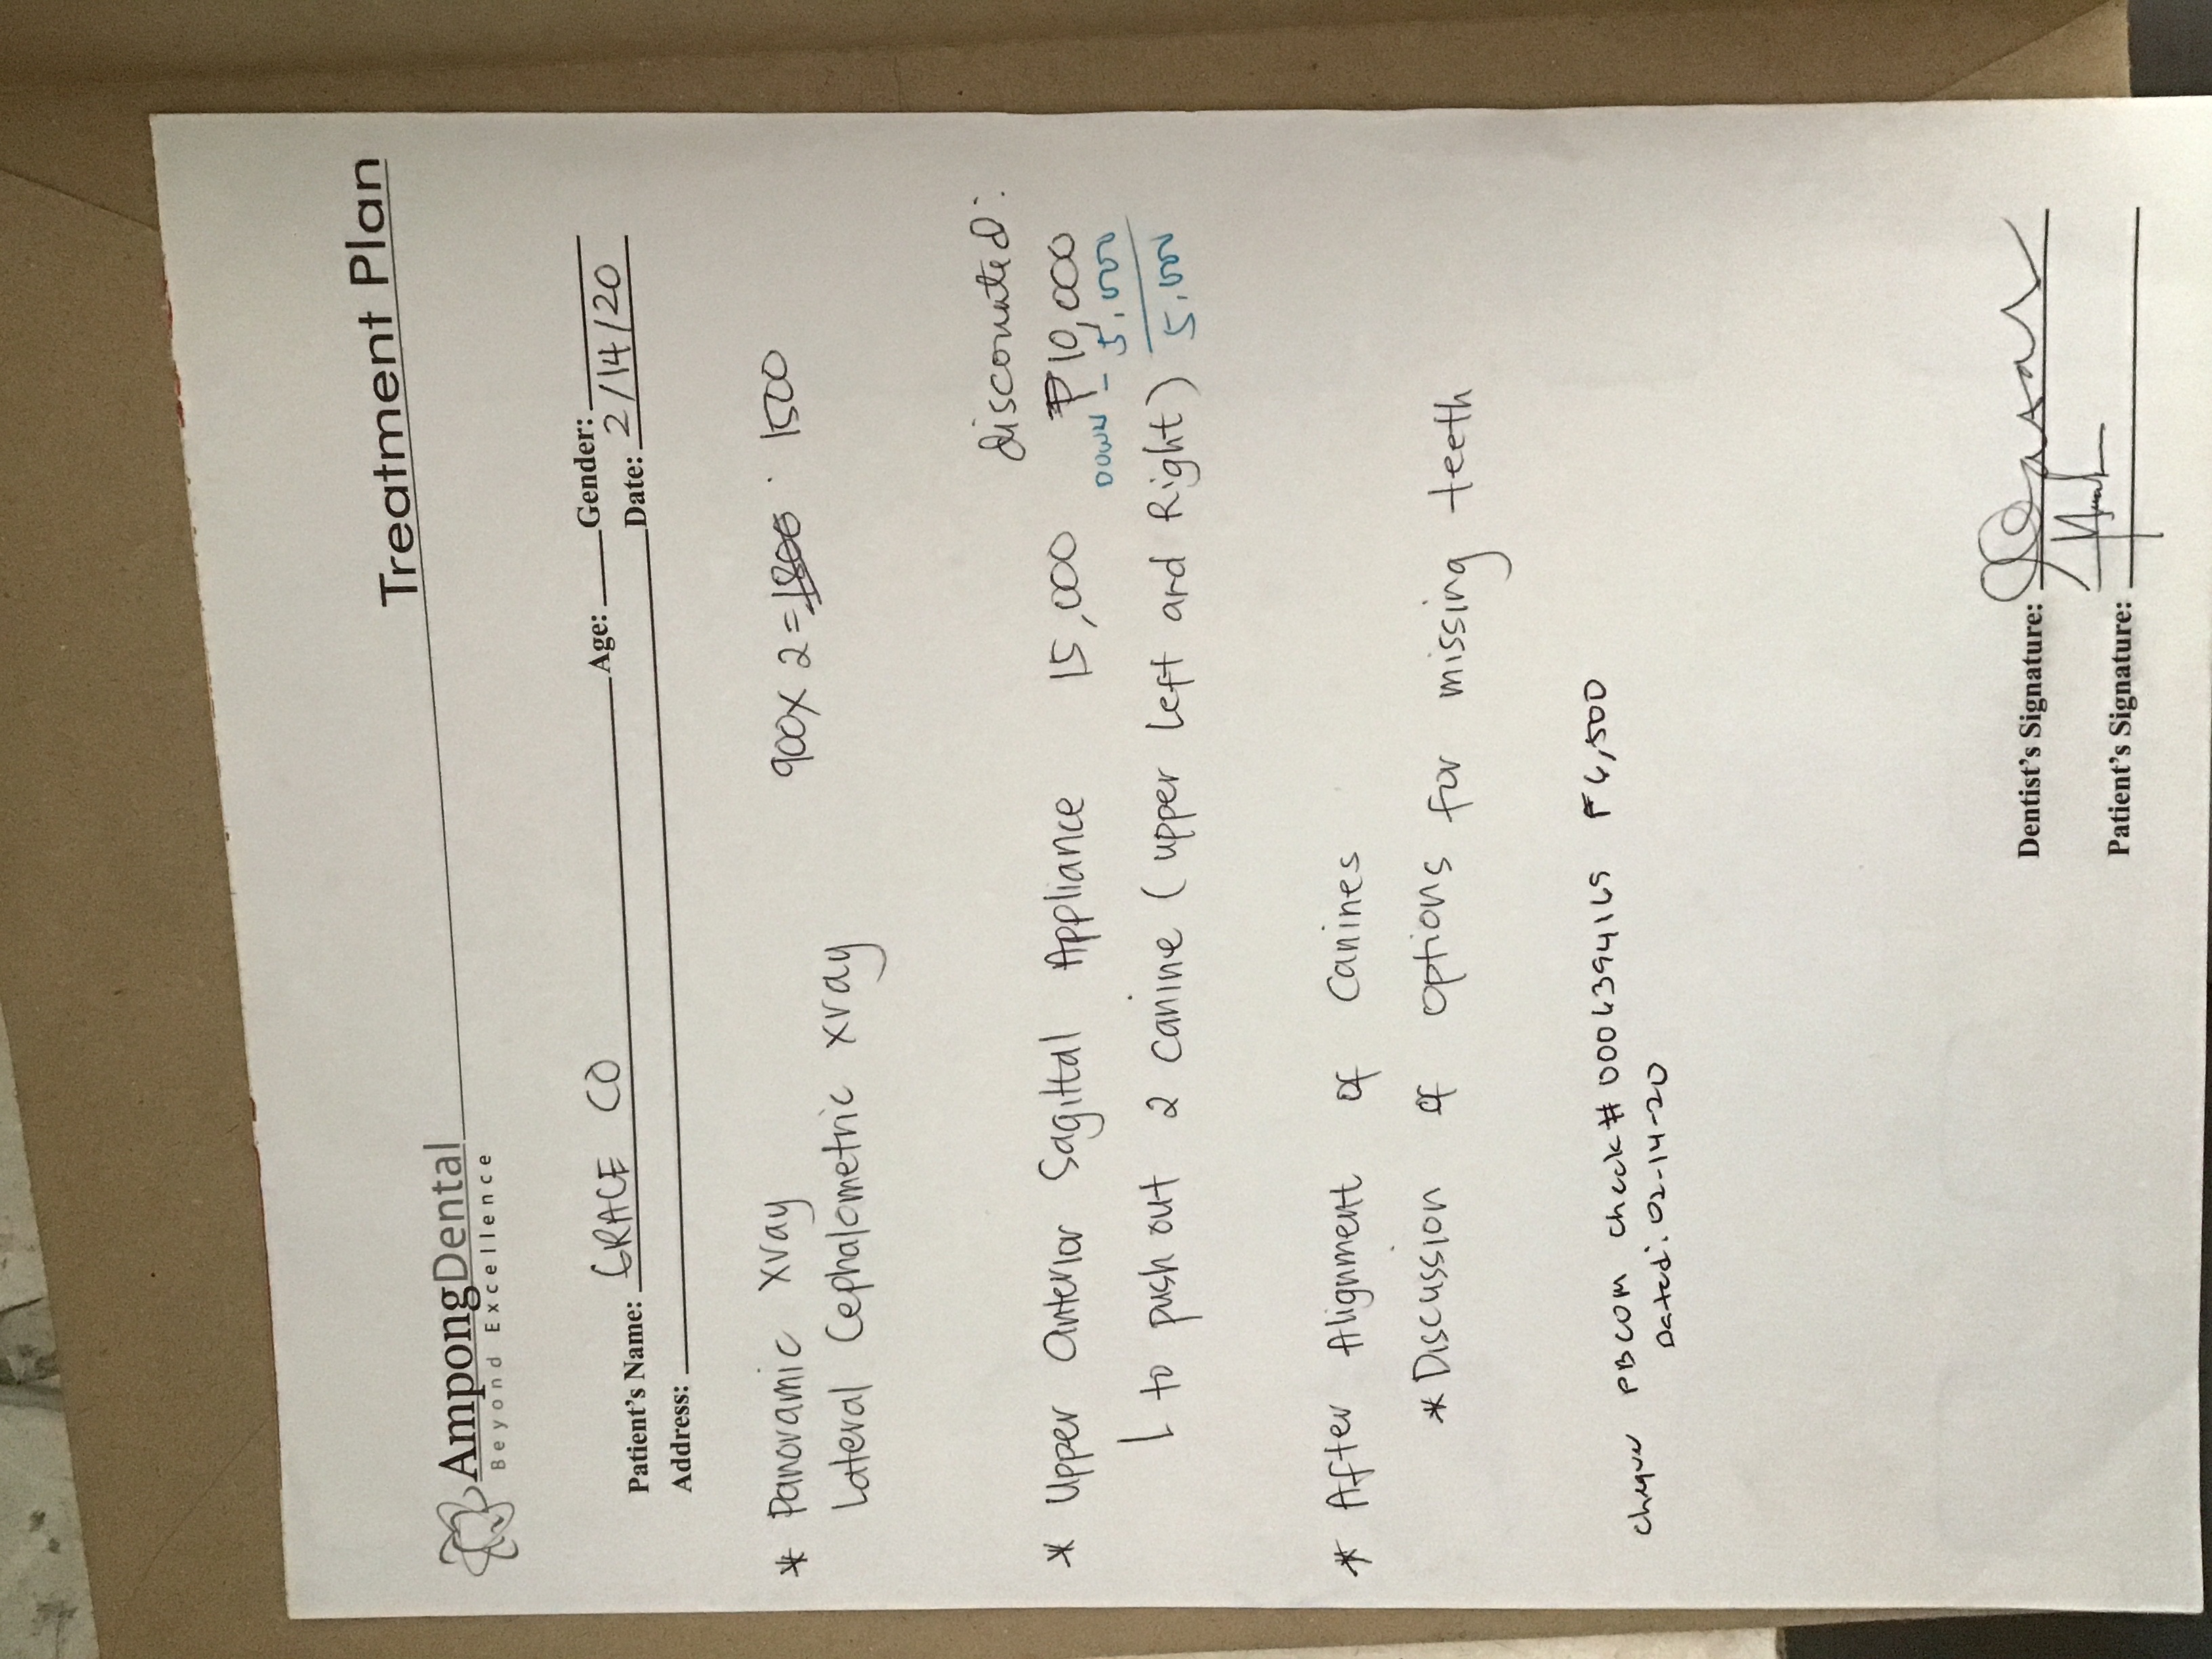 AmpongDental Treatment Plan
Beyond Excellence
Patient's Name: GRACE CO Age: Gender:
Address: Date: 2/14/20
* Panoramic xray 900 x 2 = 1800 . 1500
Lateral Cephalometric xray
discounted:
* Upper Anterior Sagittal Appliance 15,000 ₱10,000
Down - 5,000
to push out 2 canine (upper left and Right) 5,000
* After Alignment of Canines
* Discussion of options for missing teeth
PBCOM check # 0006394165 ₱6,500
Dated: 02-14-20
Dentist's Signature:
Patient's Signature: